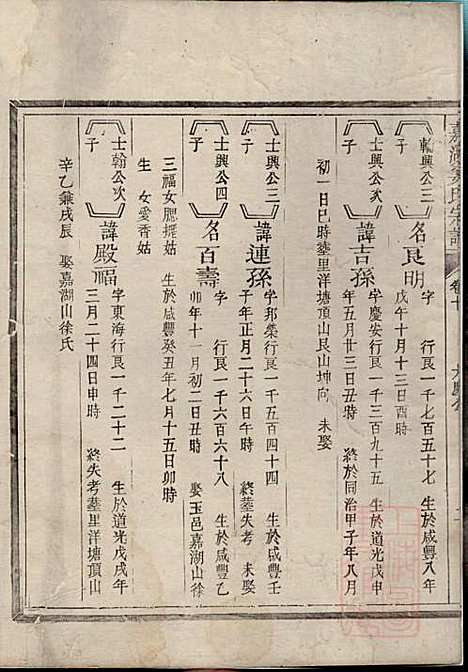 嘉湖吴氏宗譜
翰興公三子
名良明
字 行良一千七百五十七 生於咸豐八年
戊午十月十三日酉時
士興公次子
諱吉孫
字慶安行良一千三百九十五 生於道光戊申
年五月廿三日未時 終於同治甲子年八月
初一日巳時塟里洋塘頂山艮山坤向 未娶
士興公三子
諱連孫
字邦榮行良一千五百四十四 生於咸豐壬
子年正月二十六日午時 終塟失考 未娶
士興公四子
名百壽
字 行良一千六百六十八 生於咸豐乙
卯年十一月初二日丑時 娶玉邑嘉湖山徐
三福女腮採姑 生於咸豐癸丑年七月十五日卯時
生 女愛香姑
士翰公次子
諱殿福
字東海行良一千二十二 生於道光戊戌年
三月二十四日申時 終失考塟里洋塘頂山
辛乙兼戌辰 娶嘉湖山徐氏